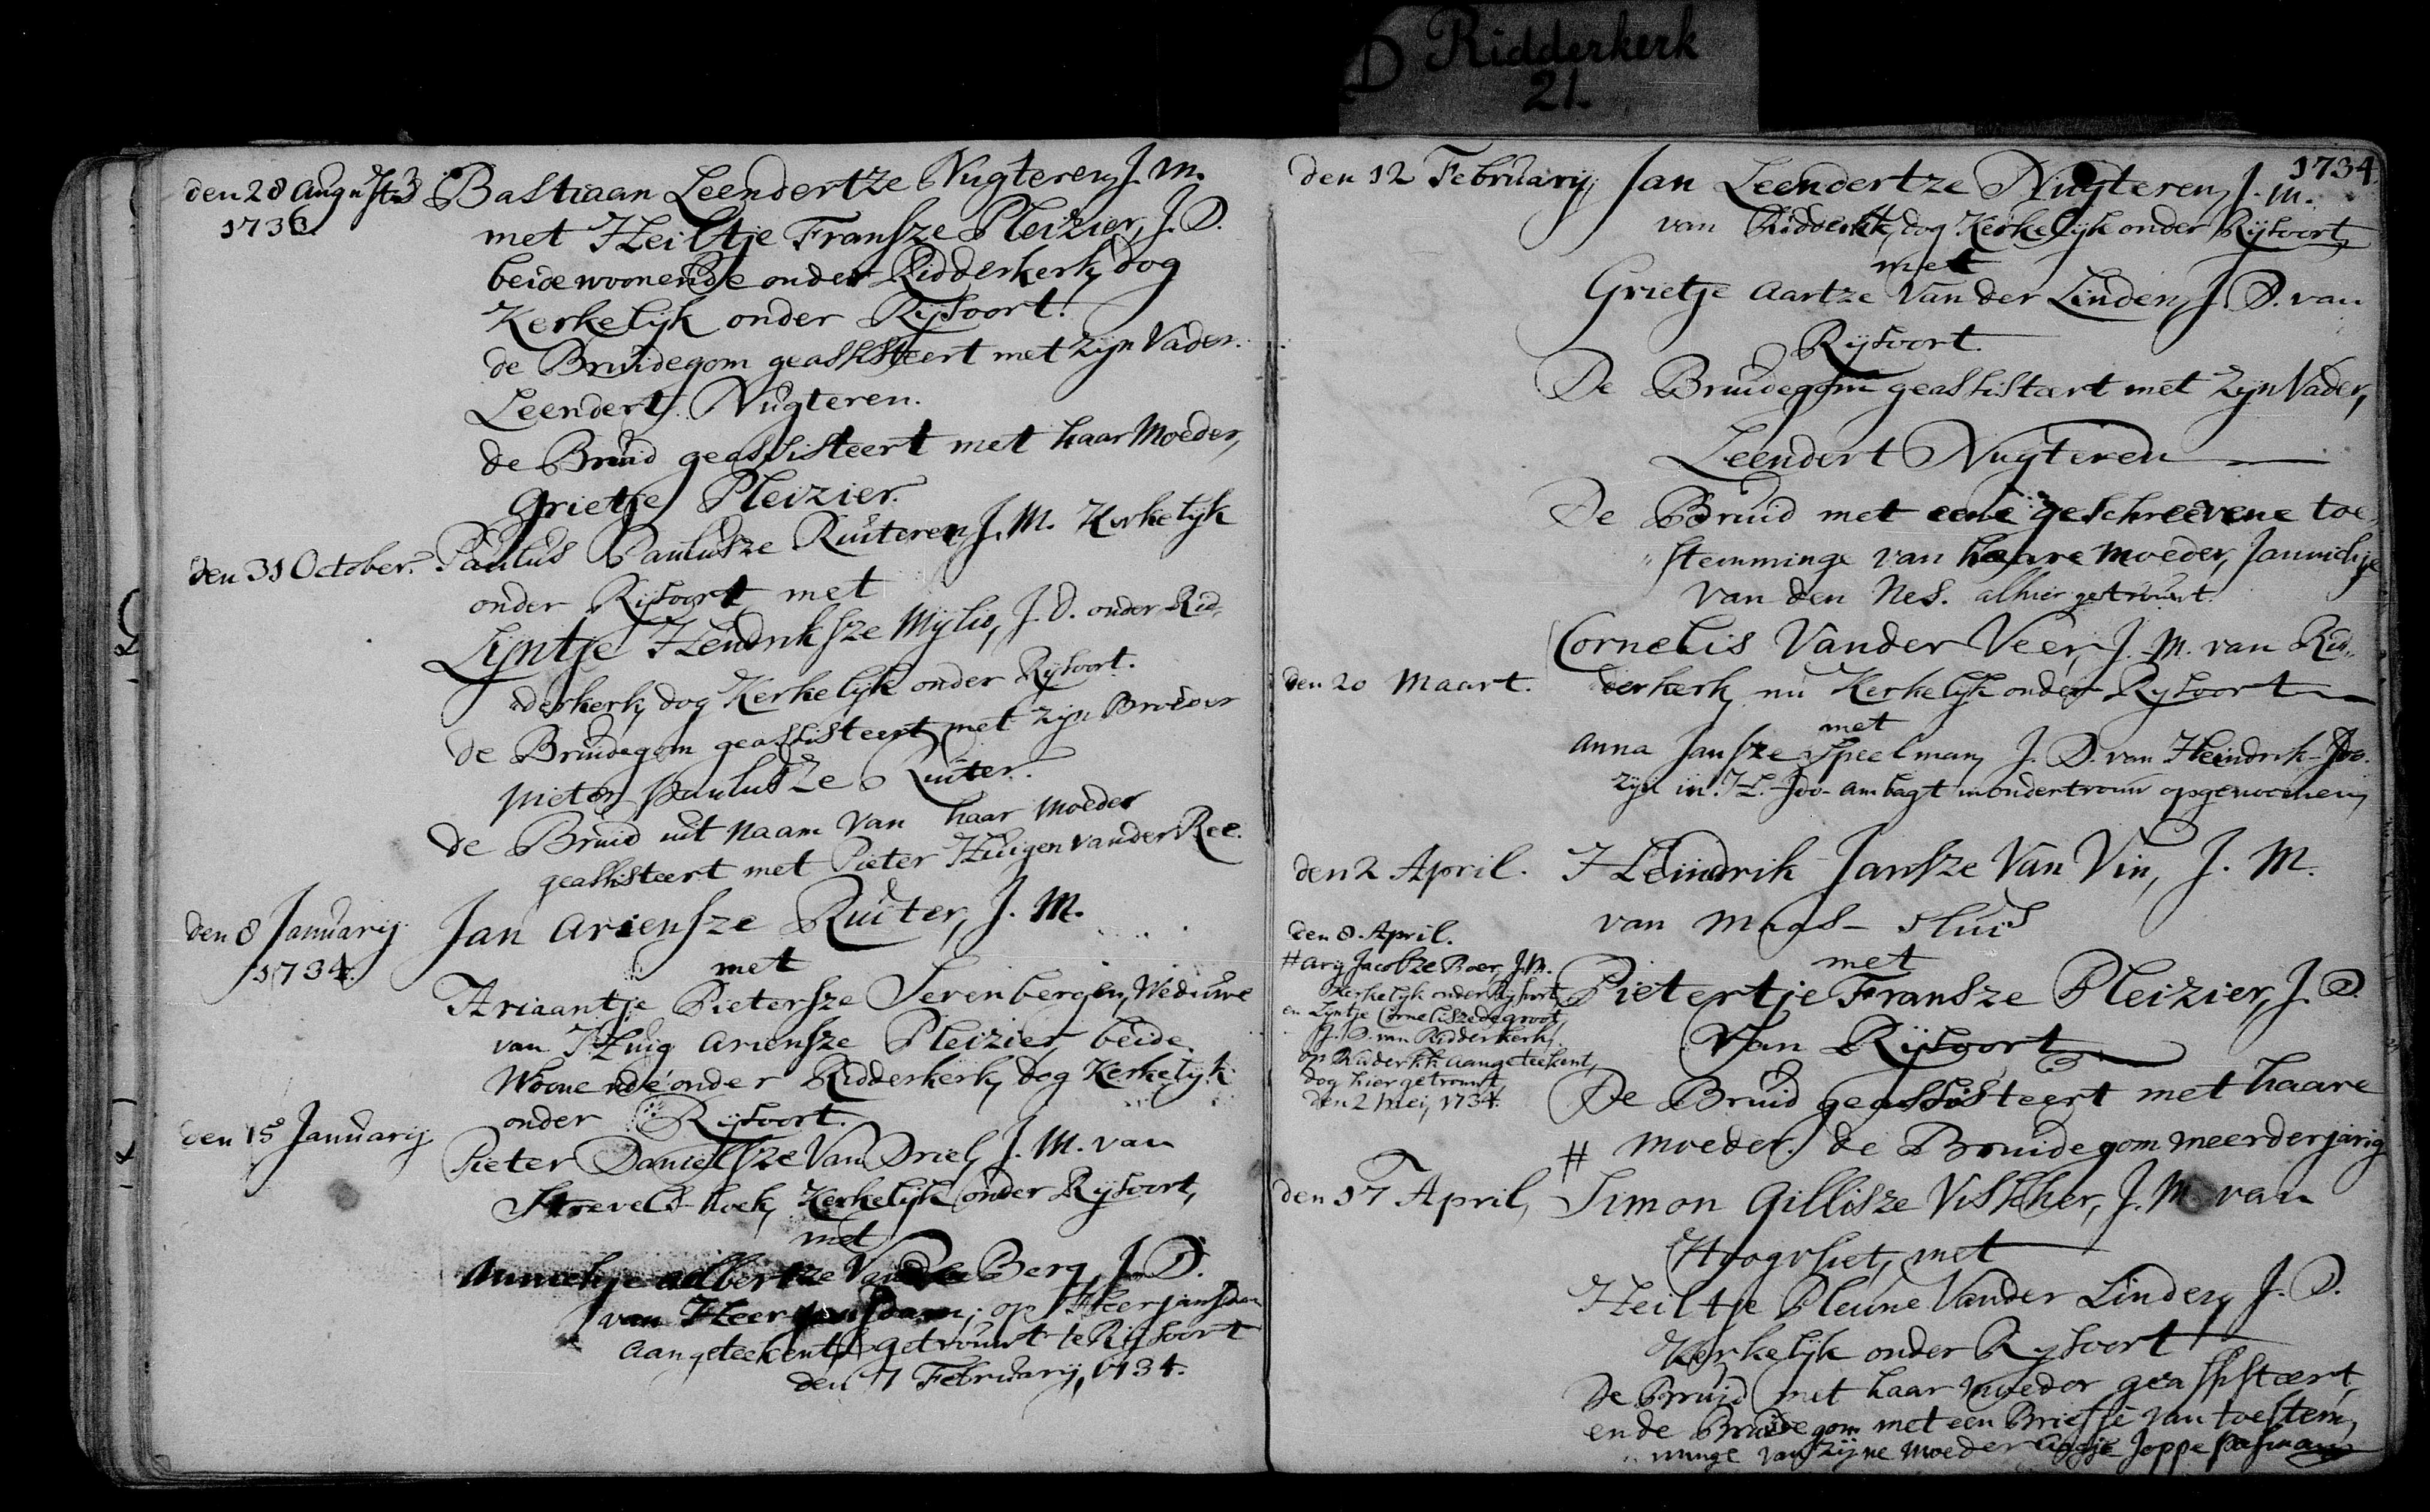 D Ridderkerk
21.
den 28 Augusts
1733.
Bastiaan Leendertze Nugteren, J. M.
met Heiltje Fransze Pleizier, J. D.
beide woonende onder Ridderkerk, dog
Kerkelijk onder Rijsoort.
de Bruidegom geassisteert met zijn Vader.
Leendert Nugteren.
de Bruid geassisteert met haar Moeder,
Grietje Pleizier.
den 31 October.
Paulus Paulusze Ruiteren, J. M. Kerkelijk
onder Rijsoort met
Lijntje Hendriksze Mijlis, J. D. onder Rid„
„derkerk, dog Kerkelijk onder Rijsoort.
de Bruidegom geassisteert met zijn Broeder
pieter paulusze Ruiter.
de Bruid uit Naam van haar Moeder
geassisteert met Pieter Huigen vander Ree.
den 8 Januarij
1734.
Jan Ariensze Ruiter, J. M.
met
Ariaantje Pietersze Sevenbergen, Weduwe
van Huig Ariensze Pleizier, beide
Woonende onder Ridderkerk, dog Kerkelijk
onder Rijsoort.
den 15 Januarij
Pieter Danielsze Van Driel, J. M. van
Strevels-hoek, Kerkelijk onder Rijsoort,
met
Annechje adbertze Vander Berg, J. D.
van Heer jansdam; op Heerjansdam
aangeteekent, getrouwt te Rijsoort
den 7 Februarij, 1734.
1734
den 12 Februarij,
Jan Leendertze Nugteren, J. M.
van Ridderkk, dog Kerkelijk onder Rijsoort,
met
Grietje Aartze Van der Linden, J. D. van
Rijsoort.
De Bruidegom geassisteert met zijn Vader,
Leendert Nugteren
De Bruid met eene geschreevene toe„
„stemminge van haare Moeder, Jannichje
van den Nes. alhier getrouwt.
den 20 Maart.
Cornelis Vander Veer, J. M. van Rid„
derkerk, nu Kerkelijk onder Rijsoort
met
Anna Jansze Speelman, J. D. van Heindrik-Ido.
zijn in H. Ido-Ambagt in ondertrouw opgenoomen,
den 2 April.
Heindrik Jansze Van Vin, J. M.
van Maas-sluis
met
Pietertje Fransze Pleizier, J. D.
Van Rijsoort
De Bruid geassisteert met haare
# Moeder. de Bruidegom meerderjarig
den 8. April.
# Arij Jacobze Boer, J. M.
Kerkelijk onder Rijsoort,
en Lijntje Cornelisze de groot,
J. D. van Ridderkerk,
op Ridderkk aangeteekent,
dog hier getrouwt,
den 2 Mei, 1734.
den 17 April,
Simon Gillisze Visscher, J. M. van
Hoogvliet, met
Heiltje Pleune Vander Linden, J. D.
Kerkelijk onder Rijsoort
De Bruid met haar Moeder geassisteert,
en de Bruidegom met een Briefje van toestem„
„minge van zijne Moeder Aagje Joppe